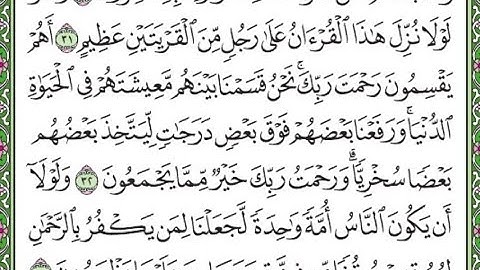 لَوْلَا نُزِّلَ هَٰذَا الْقُرْءَانُ عَلَىٰ رَجُلٍ مِّنَ الْقَرْيَتَيْنِ عَظِيمٍ ٣١ أَهُمْ
يَقْسِمُونَ رَحْمَتَ رَبِّكَ ۚ نَحْنُ قَسَمْنَا بَيْنَهُم مَّعِيشَتَهُمْ فِي الْحَيَوٰةِ
الدُّنْيَا ۚ وَرَفَعْنَا بَعْضَهُمْ فَوْقَ بَعْضٍ دَرَجَٰتٍ لِّيَتَّخِذَ بَعْضُهُم
بَعْضًا سُخْرِيًّا ۗ وَرَحْمَتُ رَبِّكَ خَيْرٌ مِّمَّا يَجْمَعُونَ ٣٢ وَلَوْلَآ
أَن يَكُونَ النَّاسُ أُمَّةً وَٰحِدَةً لَّجَعَلْنَا لِمَن يَكْفُرُ بِالرَّحْمَٰنِ